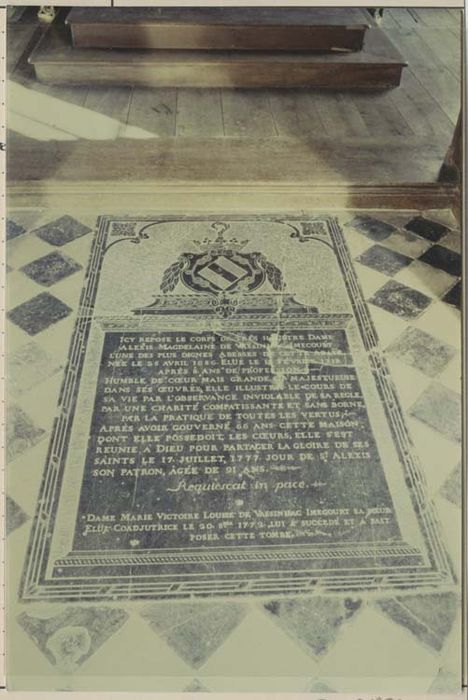 ICY REPOSE LE CORPS DE TRÉS ILLUSTRE DAME
ALEXIS MAGDELAINE DE VASSINHAC IMECOURT
L'UNE DES PLUS DIGNES ABESSES DE CETTE ABAIE
NÉE LE 25 AVRIL 1686. ELUE LE 12 FEVRIER
APRÉS 8 ANS DE PROFESSION
HUMBLE DE CŒUR MAIS GRANDE ET MAJESTUEUSE
DANS SES ŒUVRES, ELLE ILLUSTRE LE COURS DE
SA VIE PAR L'OBSERVANCE INVIOLABLE DE SA REGLE,
PAR UNE CHARITÉ COMPATISSANTE ET SANS BORNE,
PAR LA PRATIQUE DE TOUTES LES VERTUS,
APRÉS AVOIR GOUVERNÉ 66 ANS CETTE MAISON,
DONT ELLE POSSEDOIT, LES CŒURS, ELLE S'EST
REUNIE A DIEU POUR PARTAGER LA GLOIRE DE SES
SAINTS LE 17 JUILLET, 1777 JOUR DE St ALEXIS
SON PATRON, AGÉE DE 91 ANS.
Requiescat in pace.
DAME MARIE VICTOIRE LOUISE DE VASSINHAC IMECOURT SA SŒUR
ELUE COADJUTRICE LE 20. 8bre 1772. LUI A SUCCÉDÉ ET A FAIT
POSER CETTE TOMBE.